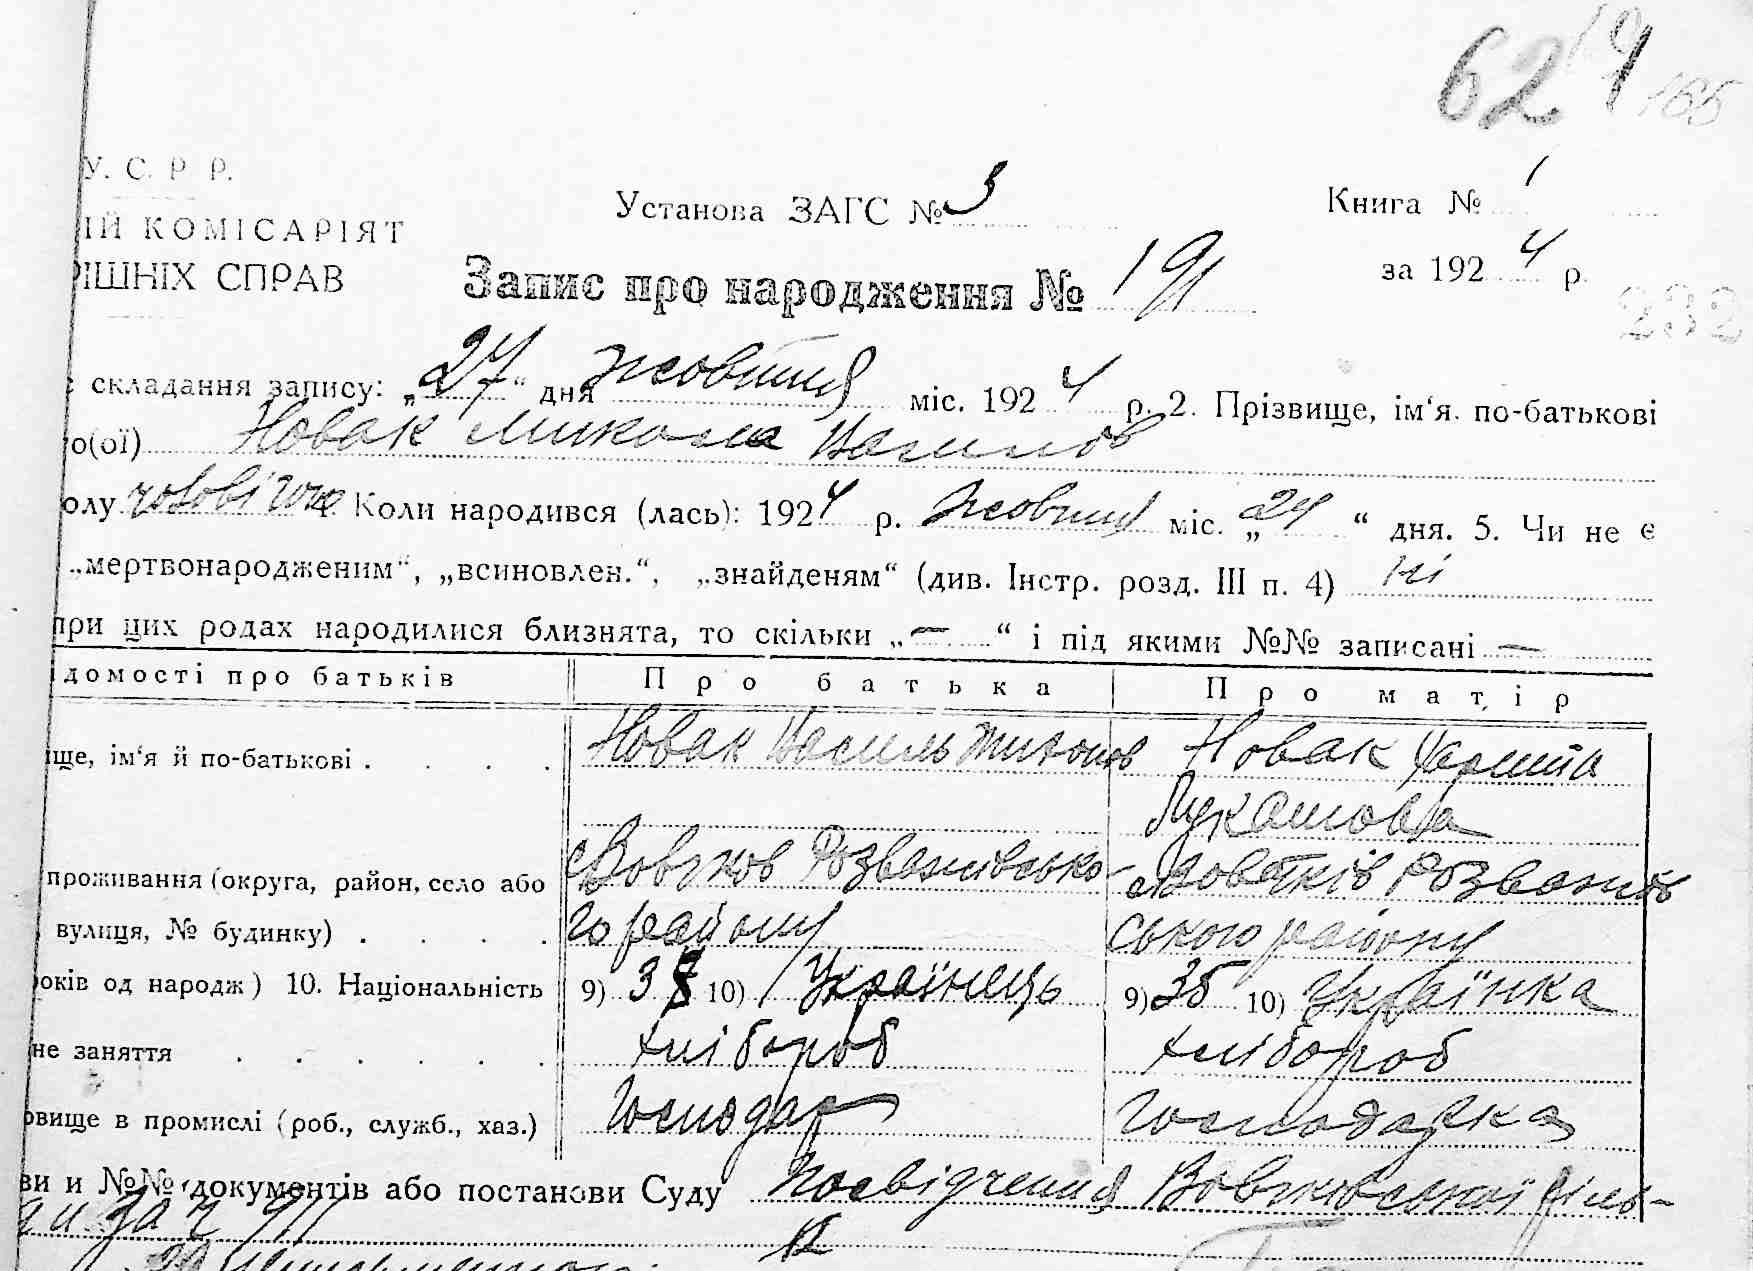 624 165
У. С. Р Р.
Установа ЗАГС № 3 Книга № 1
ІЙ КОМІСАРІЯТ
РІШНІХ СПРАВ
за 1924 р.
Запис про народження № 191
232
складання запису: „27“ дня жовтня міс. 1924 р. 2. Прізвище, ім‘я. по-батькові
о(ої) Новак Микола Васильов
олу чоловічого 4 Коли народився (лась): 1924 р. жовтня міс. „24“ дня. 5. Чи не є
„мертвонародженим“, „всиновлен.“, „знайденям“ (див. Інстр. розд. III п. 4) ні
при цих родах народилися близнята, то скільки „—“ і під якими №№ записані —
ідомості про батьків Про батька Про матір
ще, ім‘я й по-батькові . . . . Новак Василь Тихонов Новак
Лукашова
проживання (округа, район, село або Розважівсько-
вулиця, № будинку) . . . . го району ського району
років од народж) 10. Національність 9) 38 10) Українець 9) 36 10) Українка
не заняття . . . . . . Хлібороб Хлібороб
овище в промислі (роб., служб., хаз.) Господар Господарка
ви и №№ документів або постанови Суду Посвідчення сіль-
за ч 911